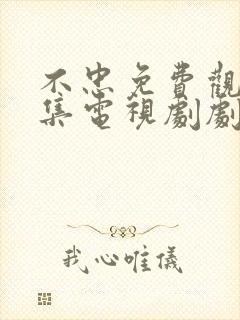 不忠免費觀
集電視劇劇
我心唯儀